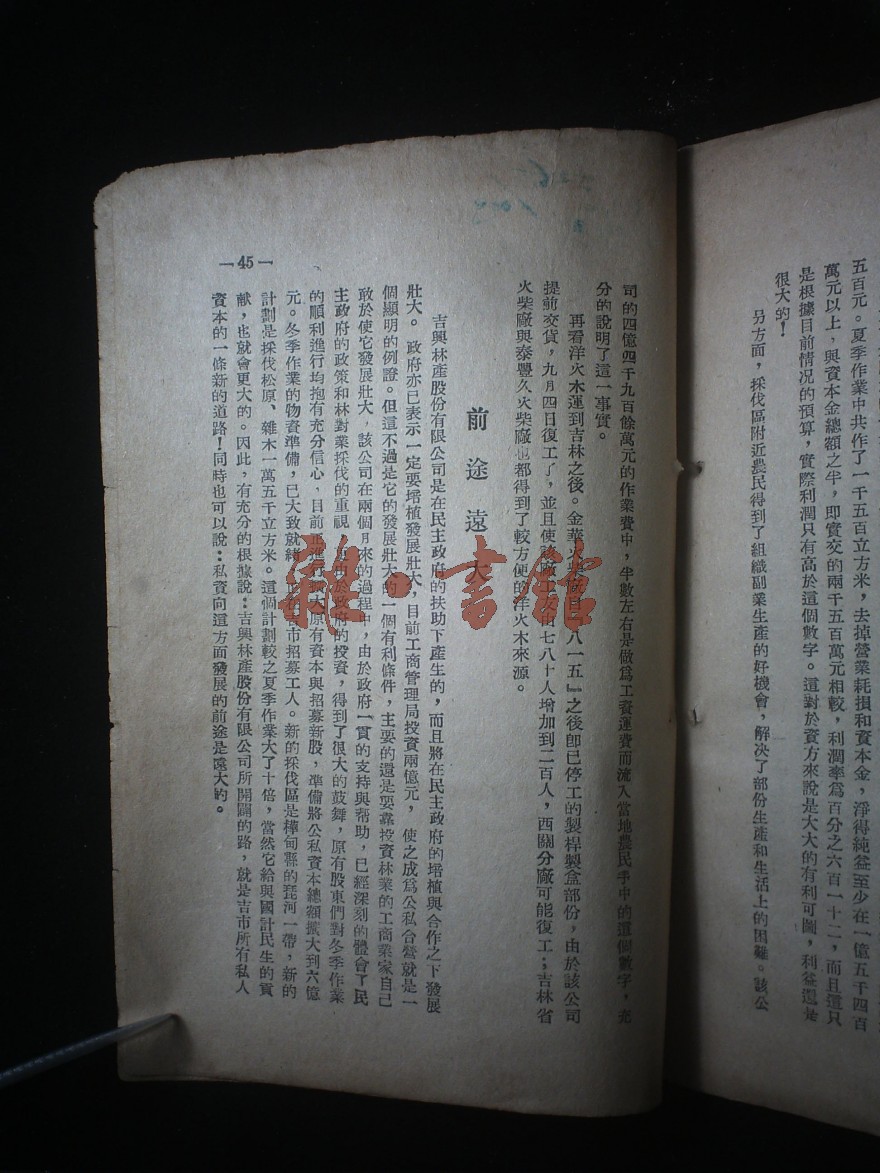 五百元。夏季作業中共作了一千五百立方米，去掉營業耗損和資本金，淨得純益至少在一億五千四百
萬元以上，與資本金總額之半，即實交的兩千五百萬元相較，利潤率爲百分之六百一十二，而且這只
是根據目前情况的預算，實際利潤只有高於這個數字。這對於資方來說是大大的有利可圖，利益還是
很大的！
另方面，採伐區附近農民得到了組織副業生產的好機會，解决了部份生產和生活上的困難。該公
司的四億四千九百餘萬元的作業費中，半數左右是做爲工資運費而流入當地農民手中的這個數字，充
分的說明了這一事實。
再看洋火木運到吉林之後。金華火柴廠自『八一五』之後即已停工的製桿製盒部份，由於該公司
提前交貨，九月四日復工了，並且使該廠工友由七八十人增加到二百人，西關分廠可能復工；吉林省
火柴廠與泰豐久火柴廠也都得到了較方便的洋火木來源。
前途遠大
吉興林產股份有限公司是在民主政府的扶助下產生的，而且將在民主政府的培植與合作之下發展
壯大。政府亦已表示一定要培植發展壯大，目前工商管理局投資兩億元，使之成爲公私合營就是一
個顯明的例證。但這不過是它的發展壯大的一個有利條件，主要的還是要靠投資林業的工商業家自己
敢於使它發展壯大，該公司在兩個月來的過程中，由於政府一貫的支持與帮助，已經深刻的體會了民
主政府的政策和林對業採伐的重視，更由於政府的投資，得到了很大的鼓舞，原有股東們對冬季作業
的順利進行均抱有充分信心，目前正進行擴大原有資本與招募新股，準備將公私資本總額擴大到六億
元。冬季作業的物資準備，已大致就緒，正在吉市招募工人。新的採伐區是樺甸縣的琵河一帶，新的
計劃是採伐松原、雜木一萬五千立方米。這個計劃較之夏季作業大了十倍，當然它給與國計民生的貢
献，也就會更大的。因此，有充分的根據說：吉興林產股份有限公司所開闢的路，就是吉市所有私人
資本的一條新的道路！同時也可以說：私資向這方面發展的前途是遠大的。
—45—
雜·書館